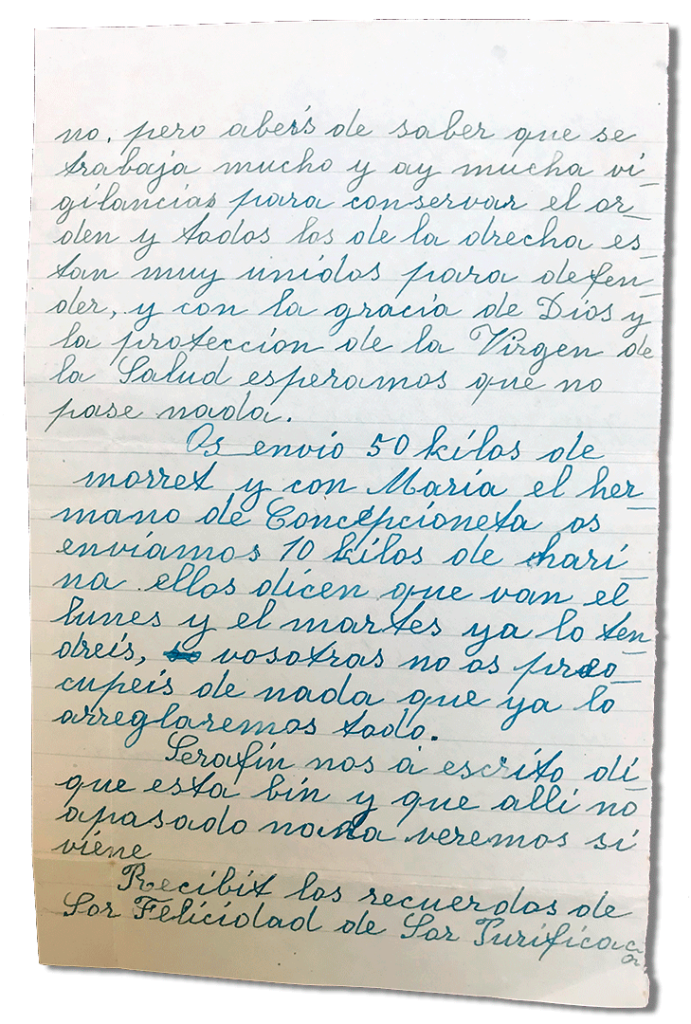 no. pero aberís de saber que se
trabaja mucho y ay mucha vi-
gilancias para conservar el or-
den y todos los de la drecha es-
tan muy unidos para defen-
der, y con la gracia de Dios y
la proteccion de la Virgen de
la Salud esperamos que no
pase nada.
Os envio 50 kilos de
morret y con Maria el her-
mano de Concepcioneta os
enviamos 10 kilos de hari-
na ellos dicen que van el
lunes y el martes ya lo ten-
dreis, vosotras no os preo-
cupeis de nada que ya lo
arreglaremos todo.
Serafin nos a escrito di
que esta bin y que alli no
apasado nada veremos si
viene
Recibit los recuerdos de
Sor Felicidad de Sor Purificac